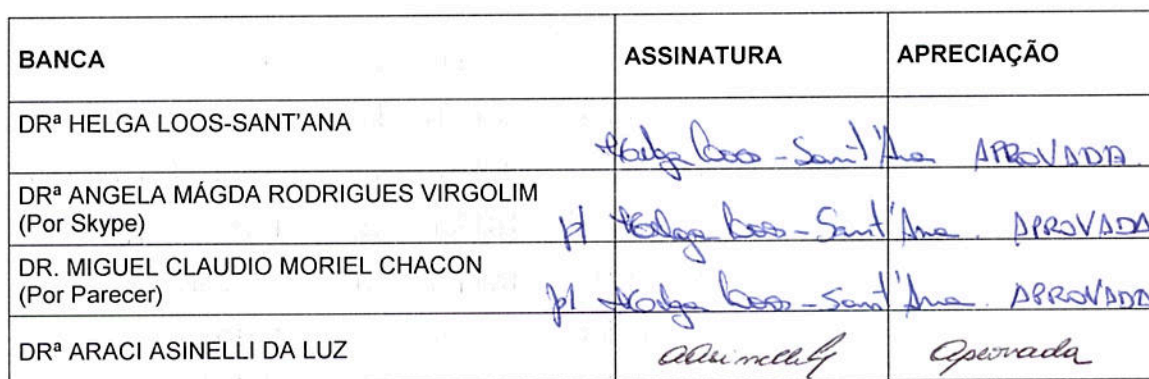 BANCA ASSINATURA APRECIAÇÃO
DRª HELGA LOOS-SANT'ANA Helga Loos-Sant'Ana APROVADA.
DRª ANGELA MÁGDA RODRIGUES VIRGOLIM
(Por Skype) p/ Helga Loos-Sant'Ana. APROVADA
DR. MIGUEL CLAUDIO MORIEL CHACON
(Por Parecer) p/ Helga Loos-Sant'Ana. APROVADA
DRª ARACI ASINELLI DA LUZ Aprovada